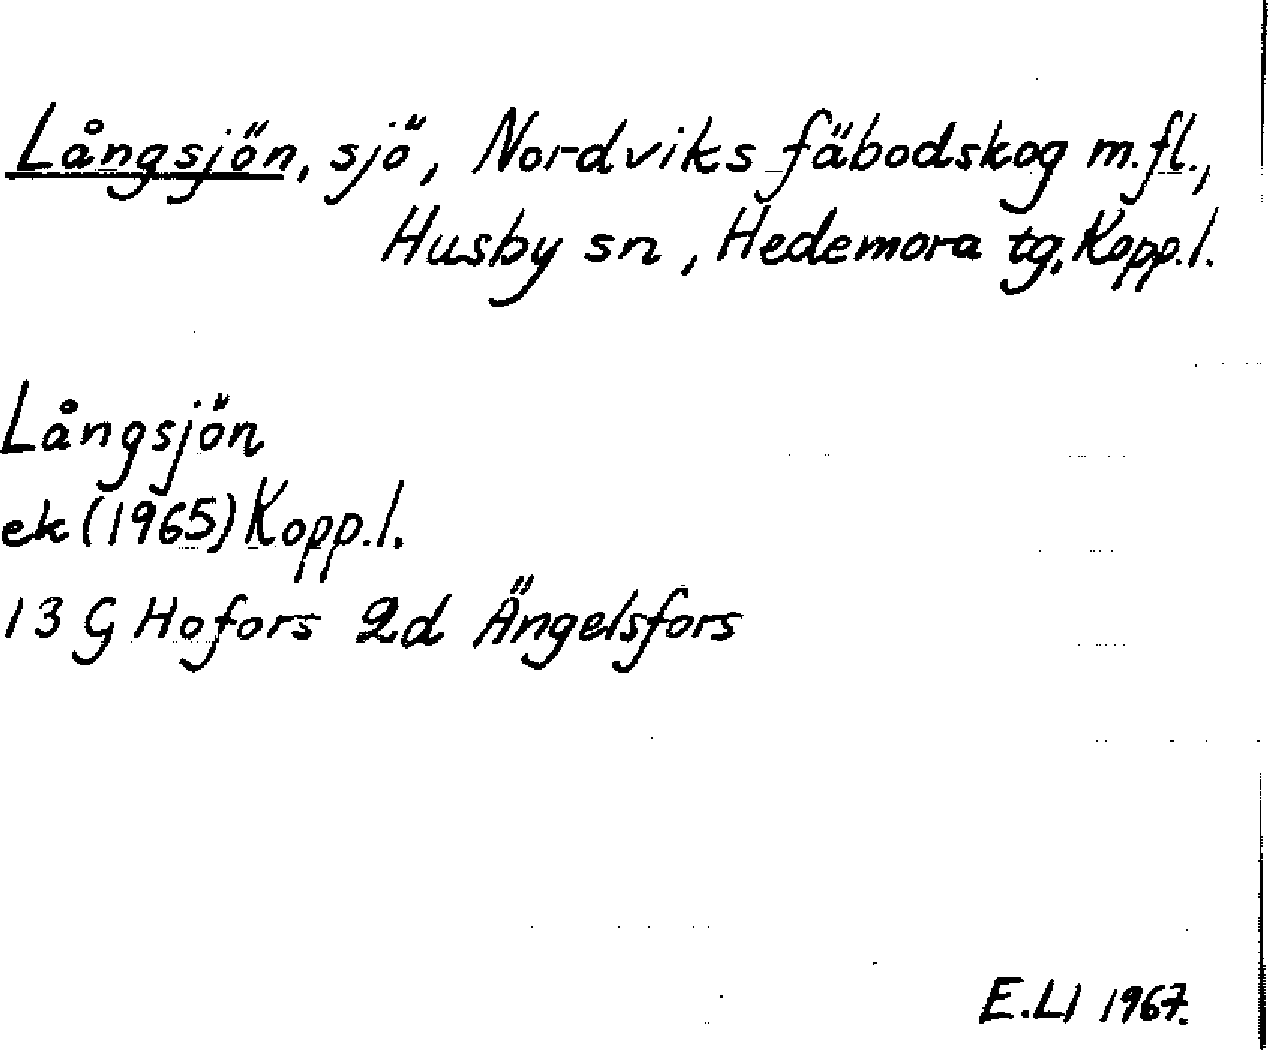 Långsjön, sjö, Nordviks fäbodskog m.fl.,
Husby sn, Hedemora tg, Kopp.l.
Långsjön
ek (1965) Kopp.l.
13 G Hofors 2d Ängelsfors
E.Ll 1967.